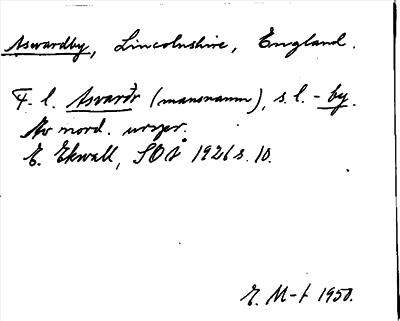 Aswardby, Lincolnshire, England.
F. l. Asvarðr (mansnamn), s. l. -by.
Av nord. urspr.
E. Ekwall, SOÅ 1926 s. 10.
E. M-t 1950.